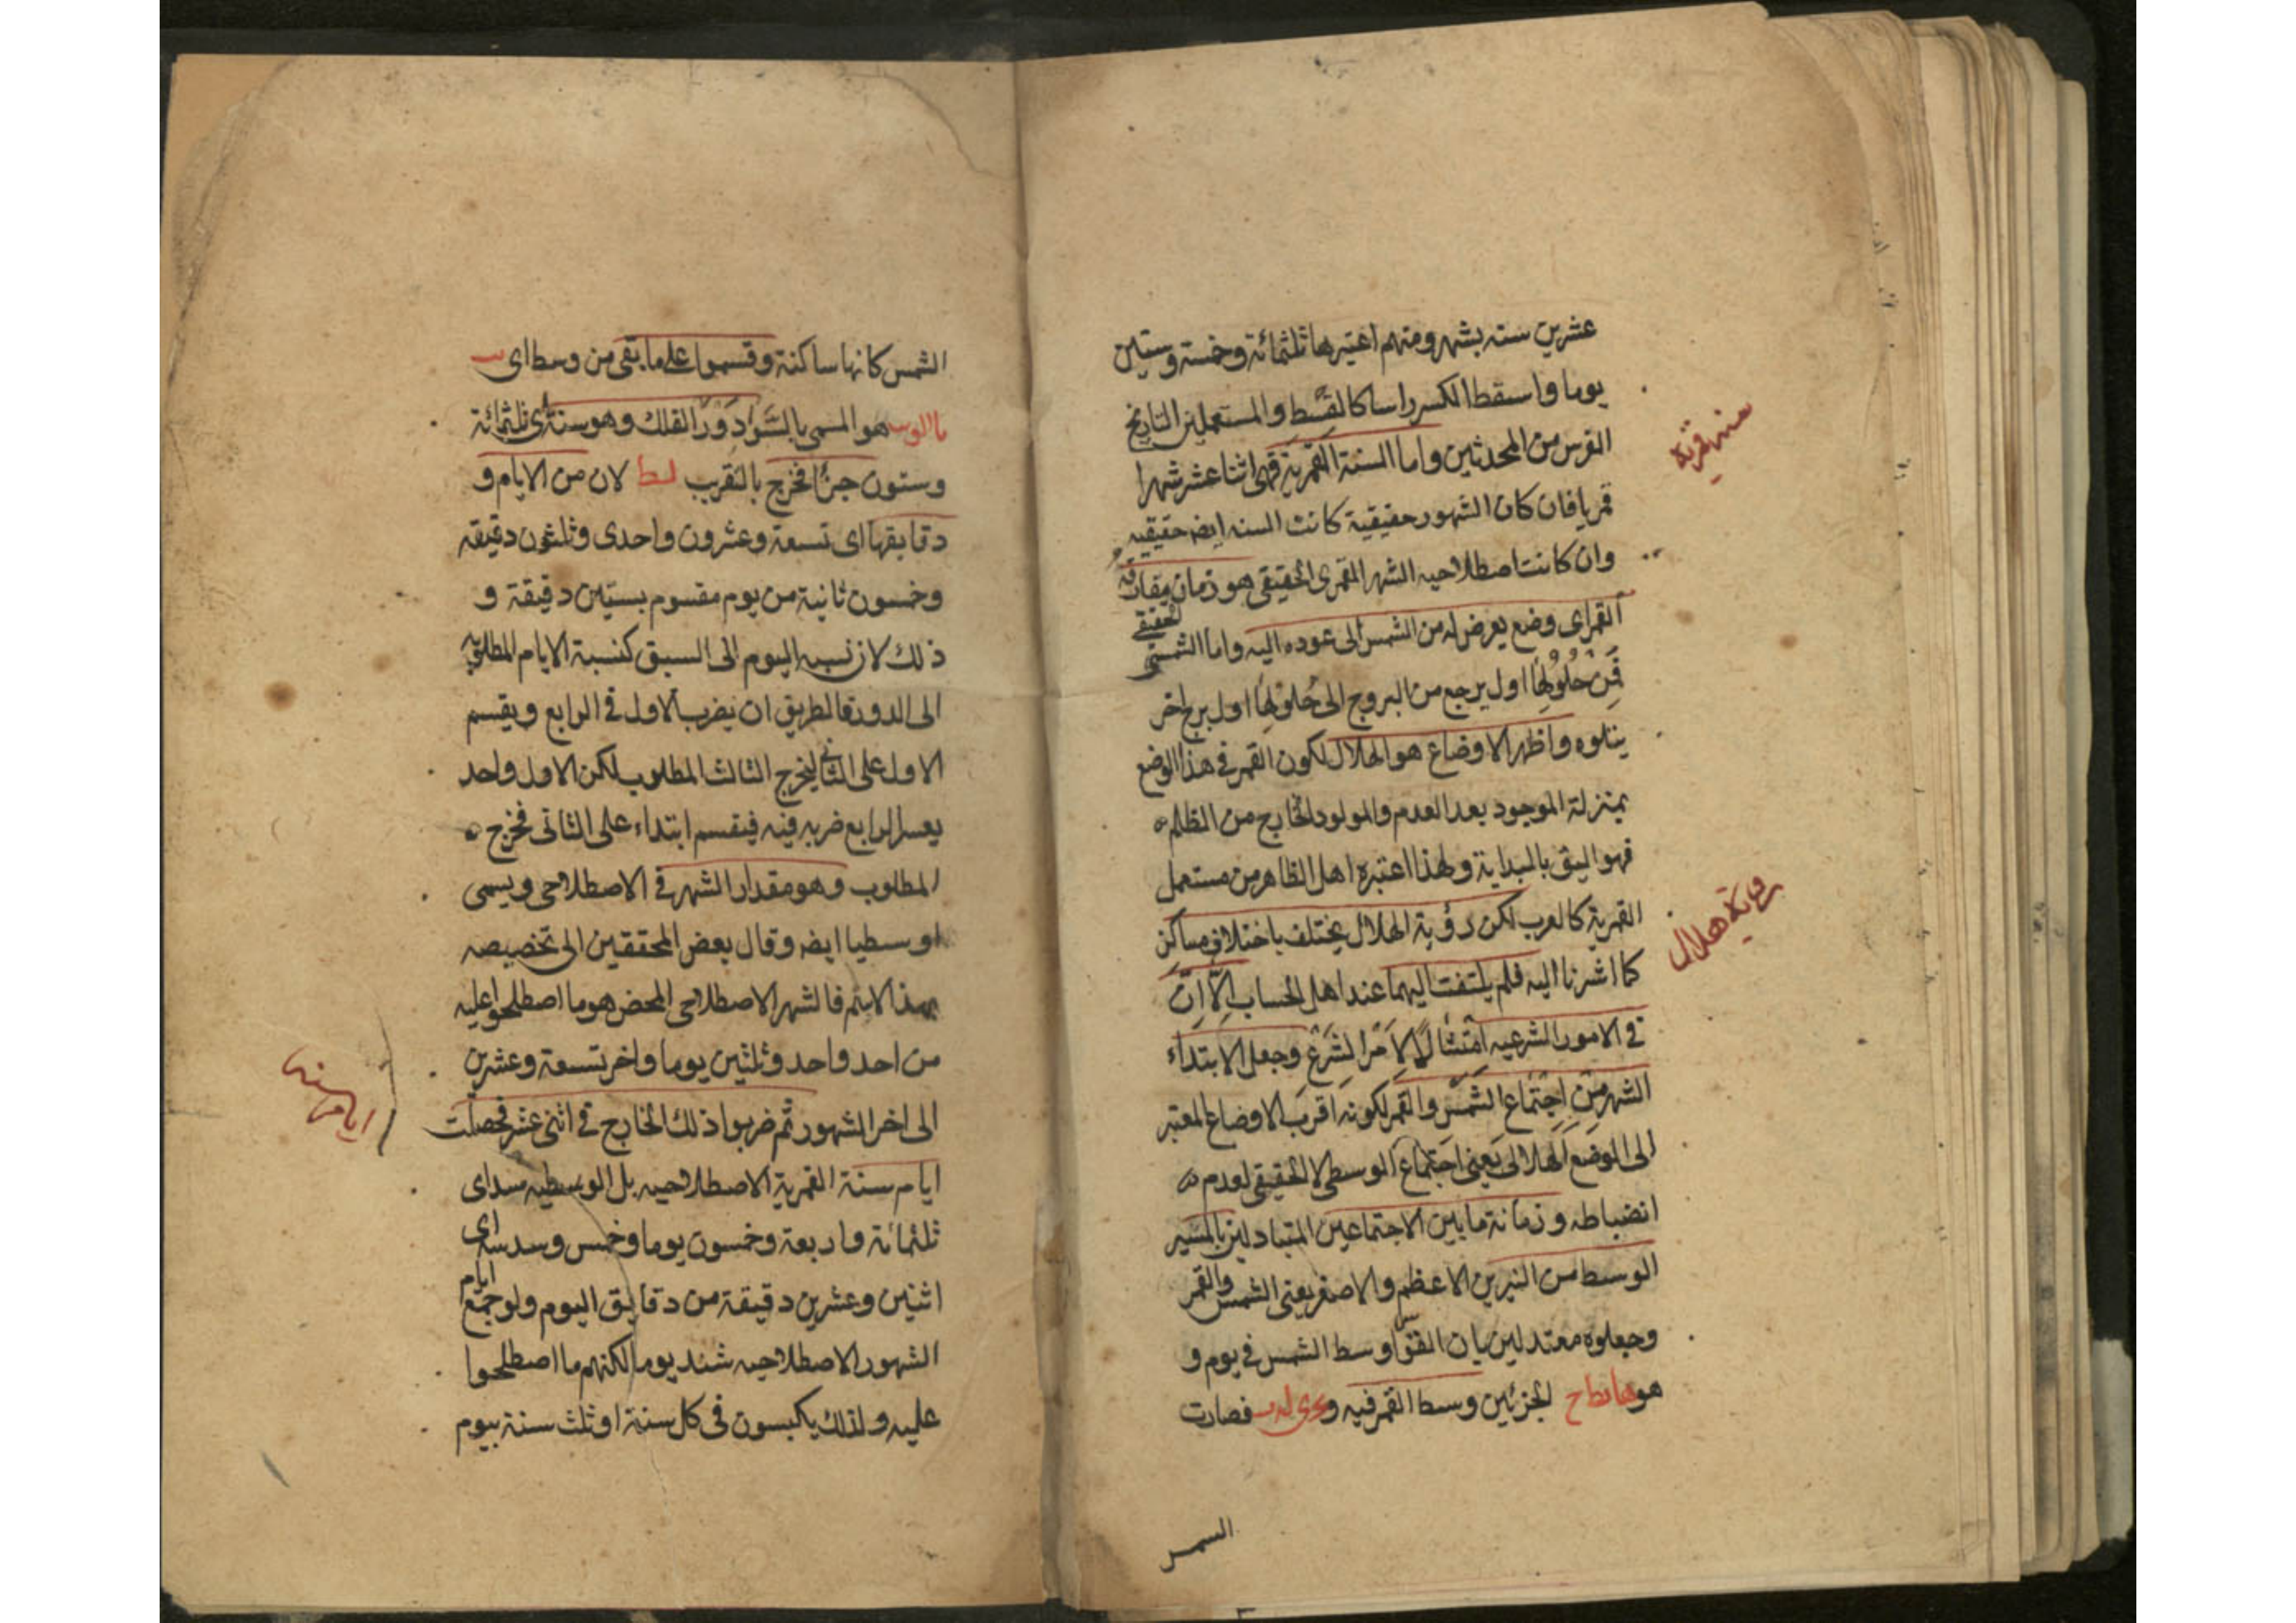 عشرين سنه بشهر ومنهم اعتبرها ثلثمائة وخمسة وستين
يوما واسقط الكسر راسا كالقبط والمستعملين التاريخ
الفرس من المحدثين واما السنة القمرية فهى اثنا عشر شهرا
قمريا فان كان الشهور حقيقية كانت السنه ايضه حقيقيه
وان كانت اصطلاحيه الشهر القمرى الحقيقى هو زمان مفارقة
القمر اى وضع يعرض له من الشمس الى عوده اليه واما الشمسى الحقيقى
فمن حلولها اول برجع من البروج الى حلولها اول برج اخر
يتلوه واظهر الاوضاع هو الهلال لكون القمر فى هذا الوضع
بمنزلة الموجود بعد العدم والمولود الخارج من الظلم
فهو اليق بالبداية ولهذا اعتبره اهل الظاهر من مستعمل
القمرية كالعرب لكن رؤية الهلال يختلف باختلاف مساكن
كما اشرنا اليه فلم يلتفت اليهما عند اهل الحساب الا ان
فى الامور الشرعيه امتثالا لامر الشرع وجعل الابتداء
الشهر من اجتماع الشمس والقمر لكونه اقرب الاوضاع المعتبر
الى الوضع الهلالى يعنى اجتماع الوسطى لا الحقيقى لعدم
انضباطه وزمانة ما بين الاجتماعين المتبادلين بالمسير
الوسط من النيرين الاعظم والاصغر يعنى الشمس والقمر
وجعلوه معتدلين بان القوا وسط الشمس فى يوم و
هو الجزئين وسط القمر فيه و فصارت
السمس
سنه قمرية
رواية هلال
الشمس كانها ساكنة وقسموا على ما بقى من وسط اى
هو المسمى بالسواد دور الفلك وهو ستة اى ثلثمائة
وستون جزأ فخرج بالتقرب لط لان من الايام و
دقايقها اى تسعة وعشرون واحدى وثلثون دقيقه
وخمسون ثانية من يوم مقسوم بستين دقيقة و
ذلك لان نسبه اليوم الى السبق كنسبة الايام المطلوبه
الى الدورة فالطريق ان يضرب الاول فى الرابع ويقسم
الاول على الثانى ليخرج الثالث المطلوب لكن الاول واحد
الرابع ضربه فيه فيقسم ابتداء على الثانى فخرج
المطلوب وهو مقدار الشهر فى الاصطلاحى ويسمى
اوسطيا ايضه وقال بعض المحققين الى تخصيصه
بهذا الاسم فالشهر الاصطلاحى المحض هو ما اصطلحوا عليه
من احد واحد وثلثين يوما واخر تسعة وعشرين
الى اخر الشهور ثم ضربوا ذلك الخارج فى اثنى عشر فحصلت
ايام سنة القمرية الاصطلاحيه بل الوسطيه اى
ثلثمائة واربعة وخمسون يوما وخمس وسدسه اى
اثنين وعشرين دقيقة من دقايق اليوم ولو جمع ايام
الشهور الاصطلاحيه شند يوما لكنهم ما اصطلحوا
عليه ولذلك يكبسون فى كل سنة او ثلث سنة بيوم
ايام سنه